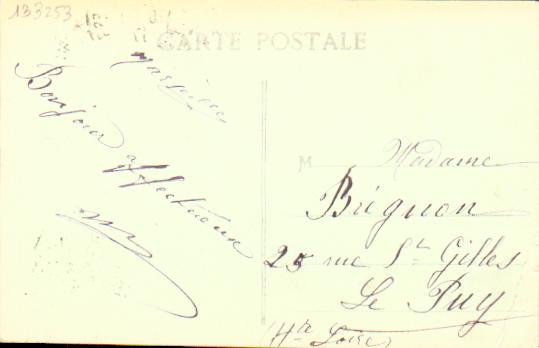 133253
CARTE POSTALE
Marseille
Bonjour affectueux
M
Madame
Brignon
25 rue St Gilles
Le Puy
(Hte Loire)